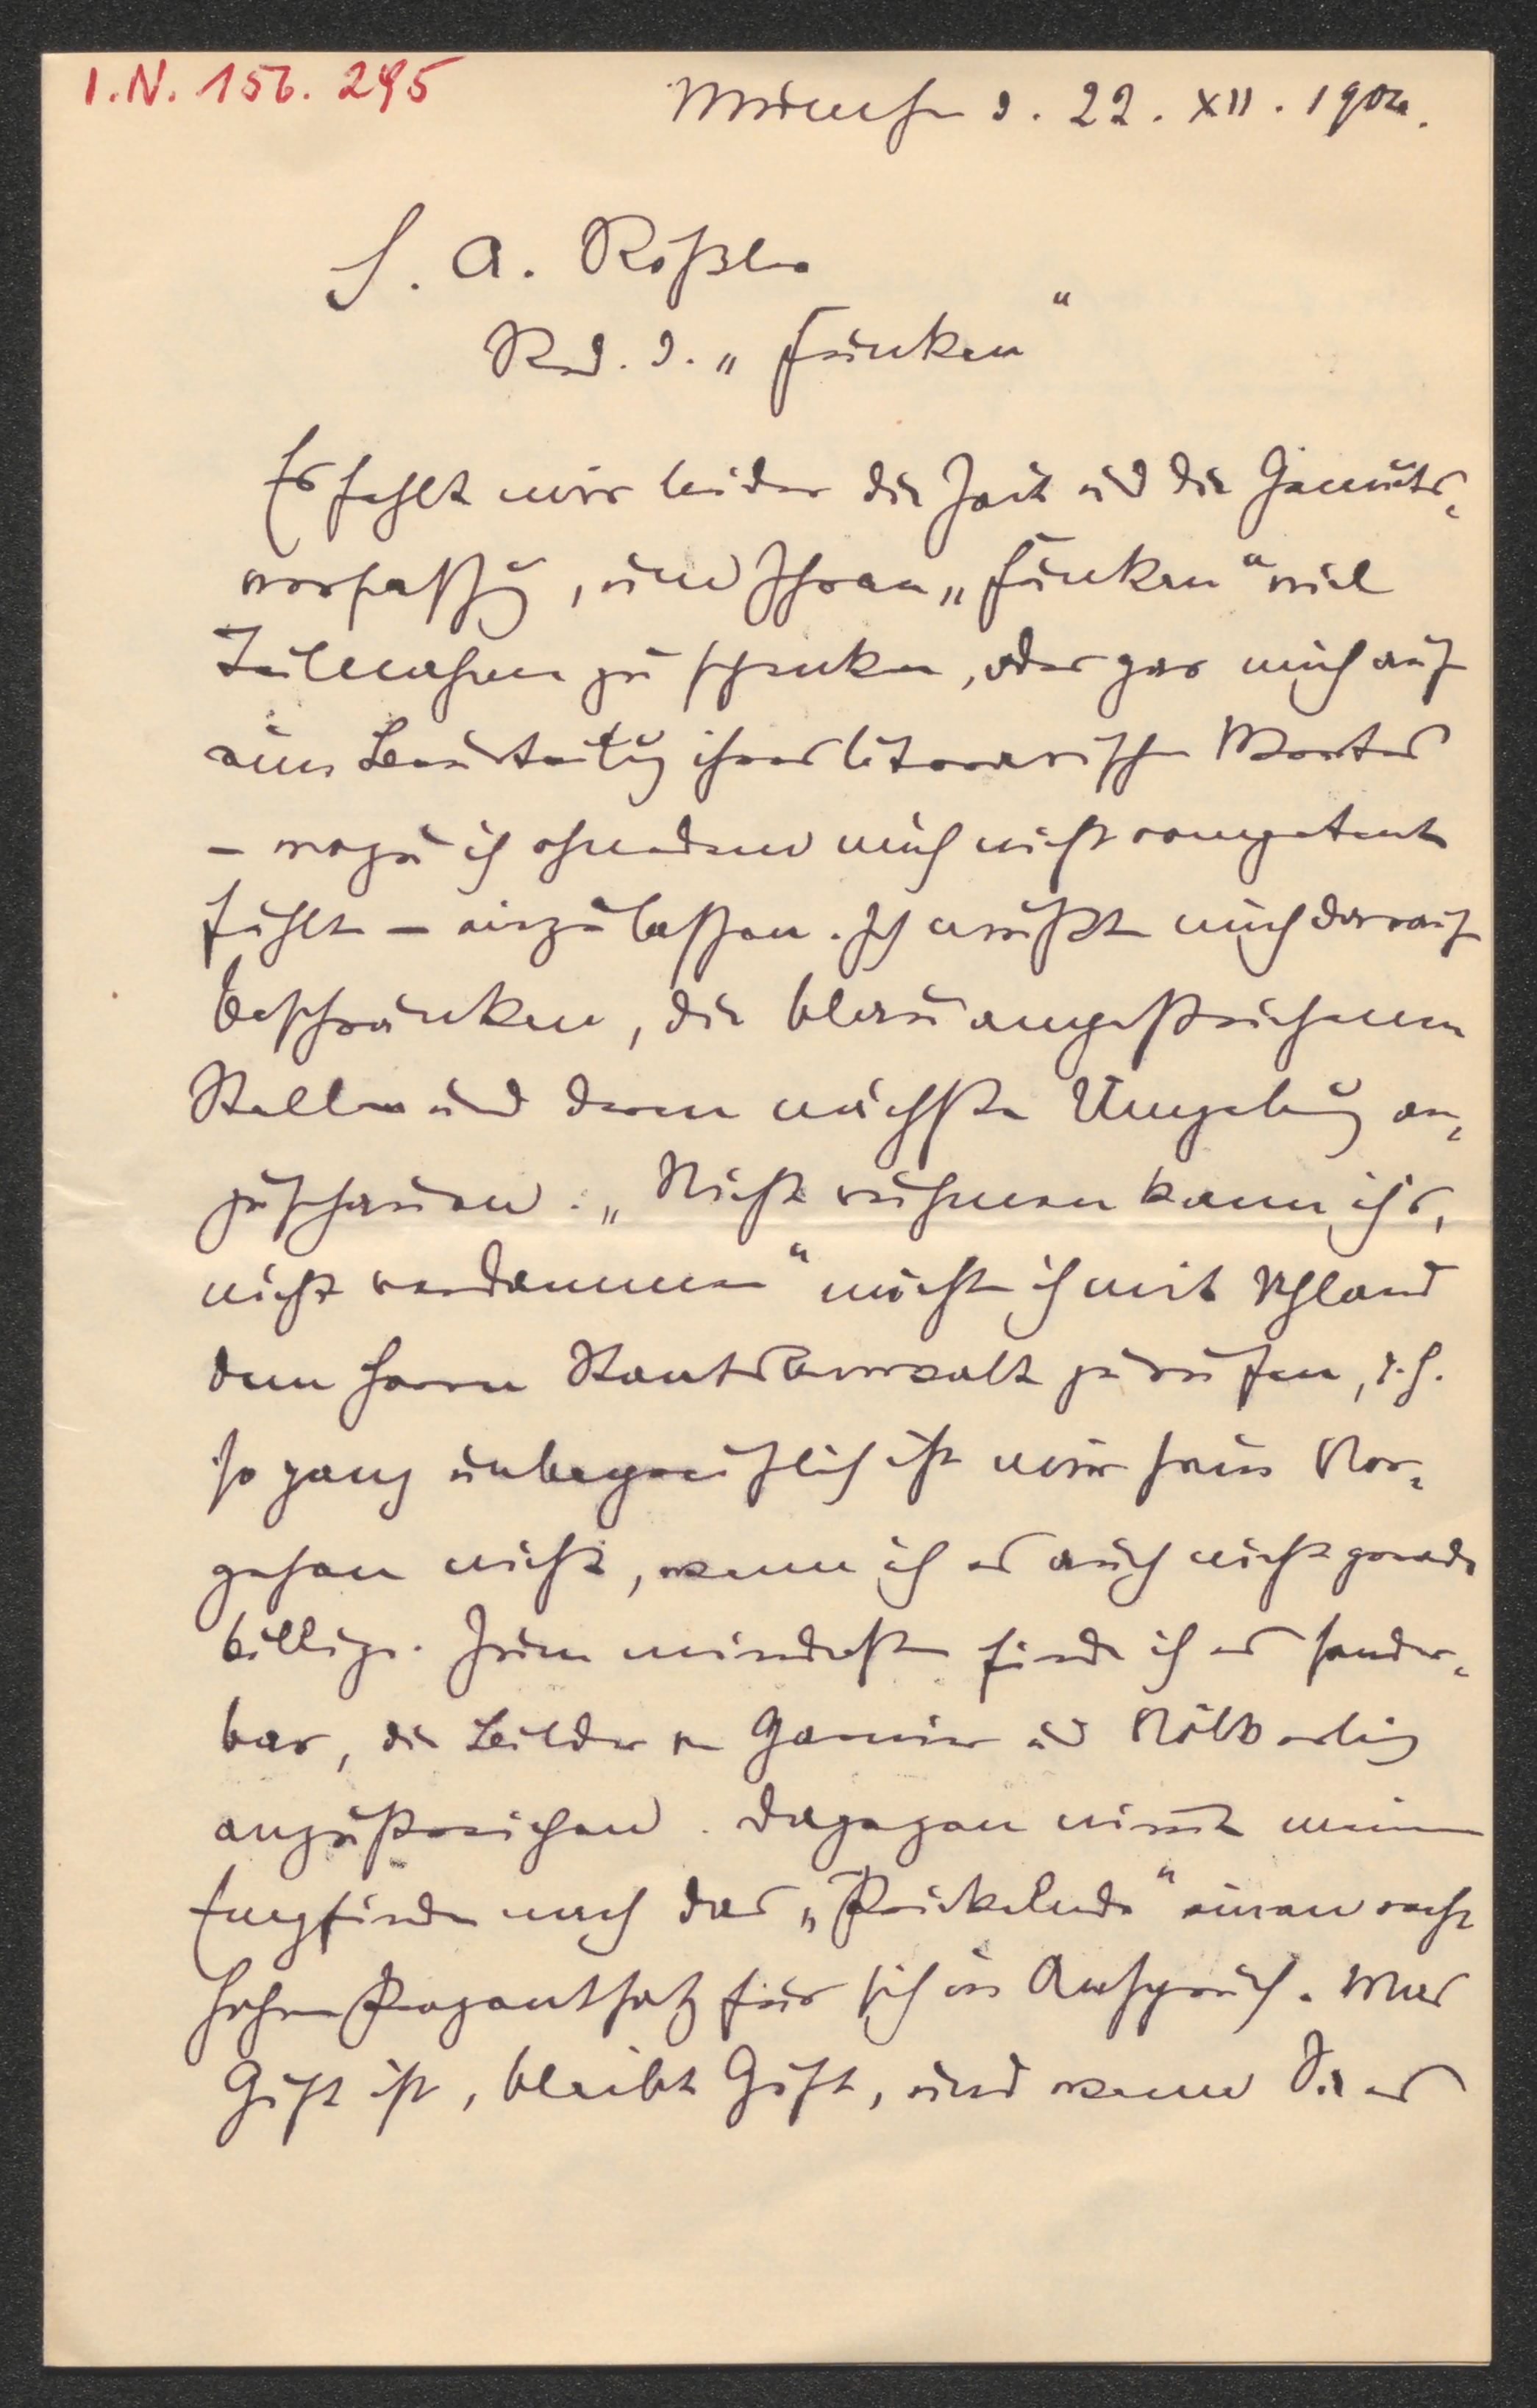 I.N. 156.295
München d. 22. XII. 1904.
H. A. Roeßler
Red. d. „Funken“
Es fehlt mir leider die Zeit u d die Gemüts-
verfassg, um Ihren „Funken“ viel
Teilnahme zu schenken, oder gar mich auf
eine Beurteilg ihres literarischen Wertes
– wozu ich ohnedem mich nicht competent
fühle – einzulassen. Ich mußte mich darauf
beschränken, die blau angestrichenen
Stellen und deren nächste Umgebung an-
zuschauen. „Nicht rühmen kann ich's,
nicht verdammen“ möchte ich mit Uhland
dem Herrn Staatsanwalt zurufen, d.h.
so ganz unbegreiflich ist mir sein Vor-
gehen nicht, wenn ich es auch nicht gerade
billige. Zum mindesten finde ich es sonder-
bar, die Bilder v. Garnier u d Nölkerling
anzustreichen. Dagegen nimt meinem
Empfinden nach das „Prickelnde“ einen recht
hohen Prozentsatz für sich in Anspruch. Was
Gift ist, bleibt Gift, und wenn Sie es